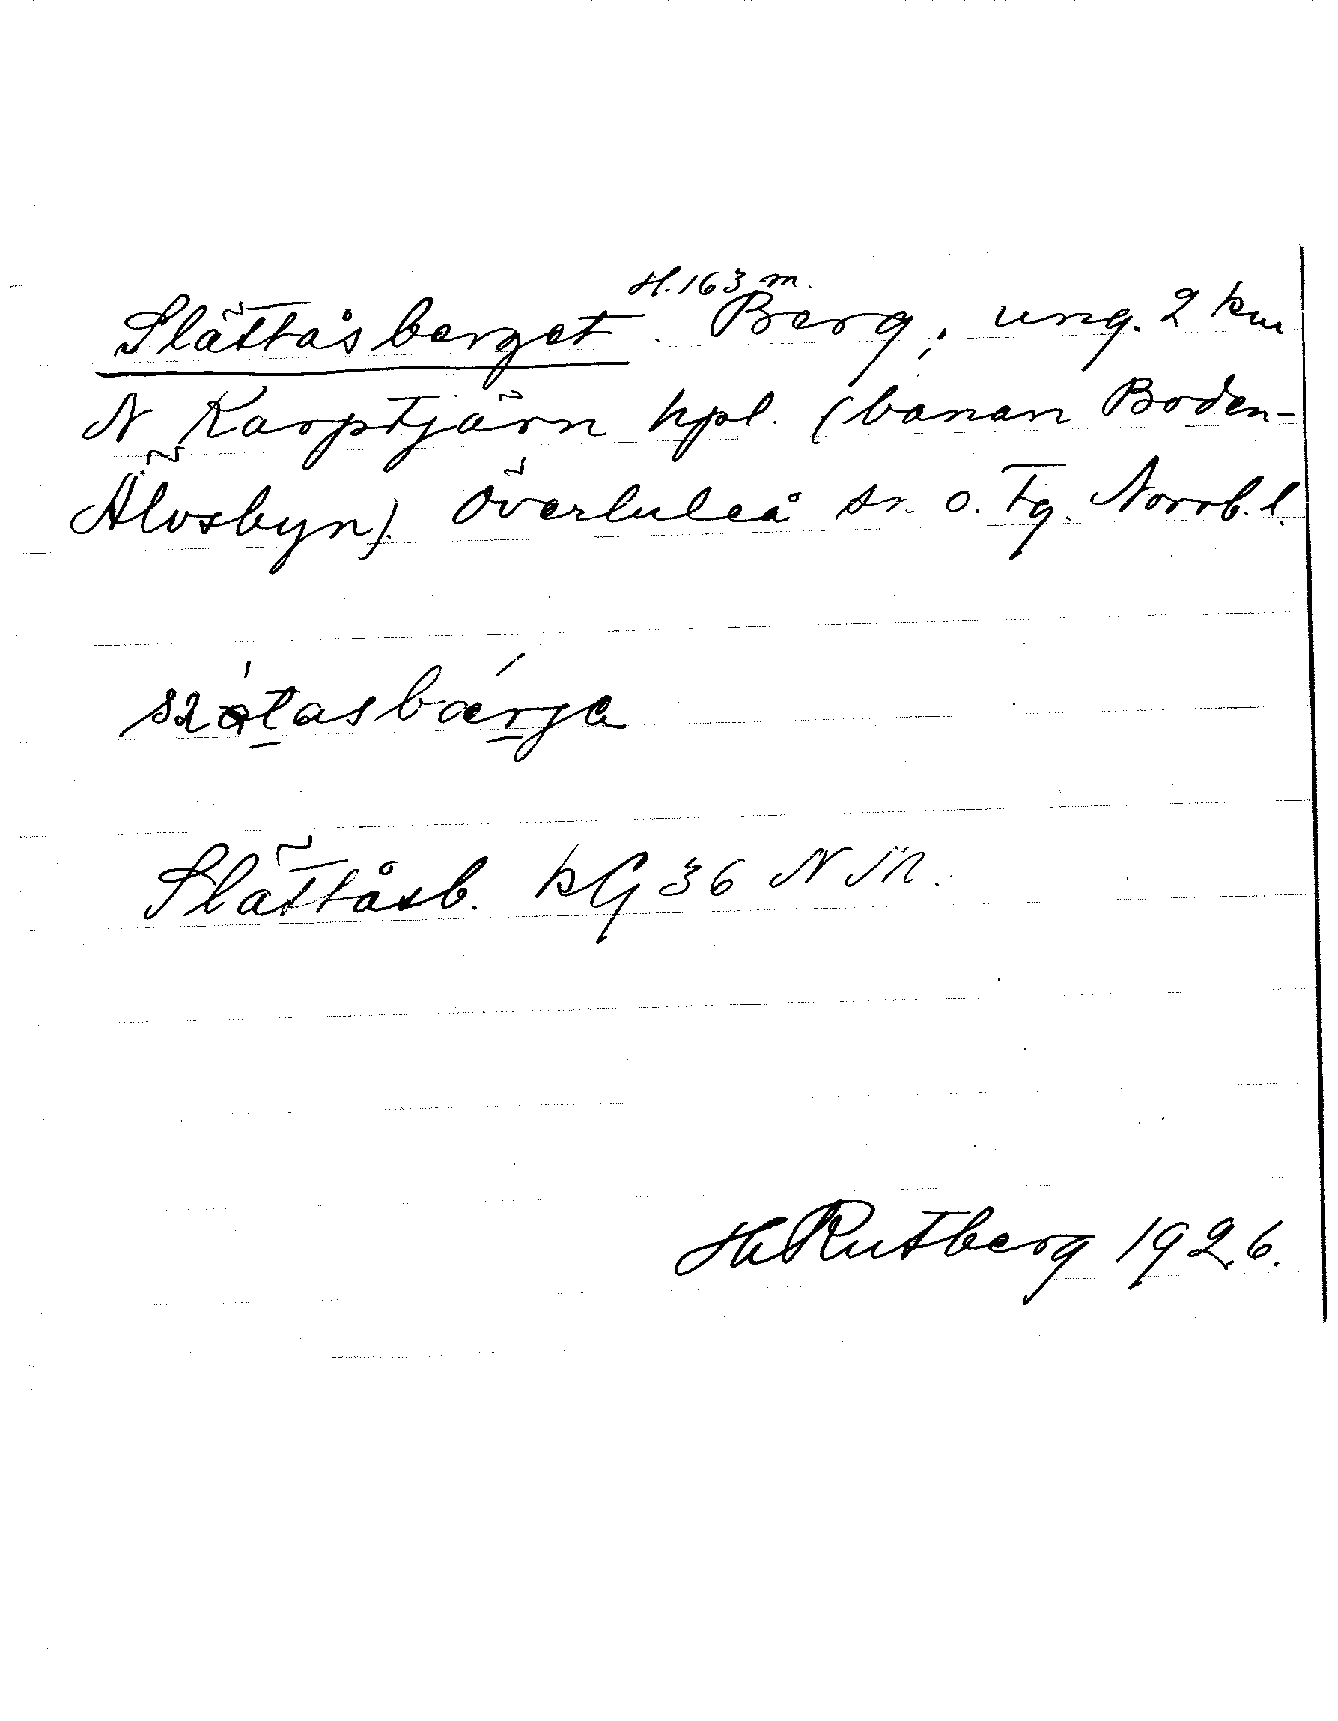 H. 163 m.
Slättåsberget. Berg, ung. 2 km
N Karptjärn hpl. (banan Boden-
Älvsbyn). Överluleå sn. o. tg. Norrb. l.
Slättåsb. kG 36 N M.
H Rutberg 1926.